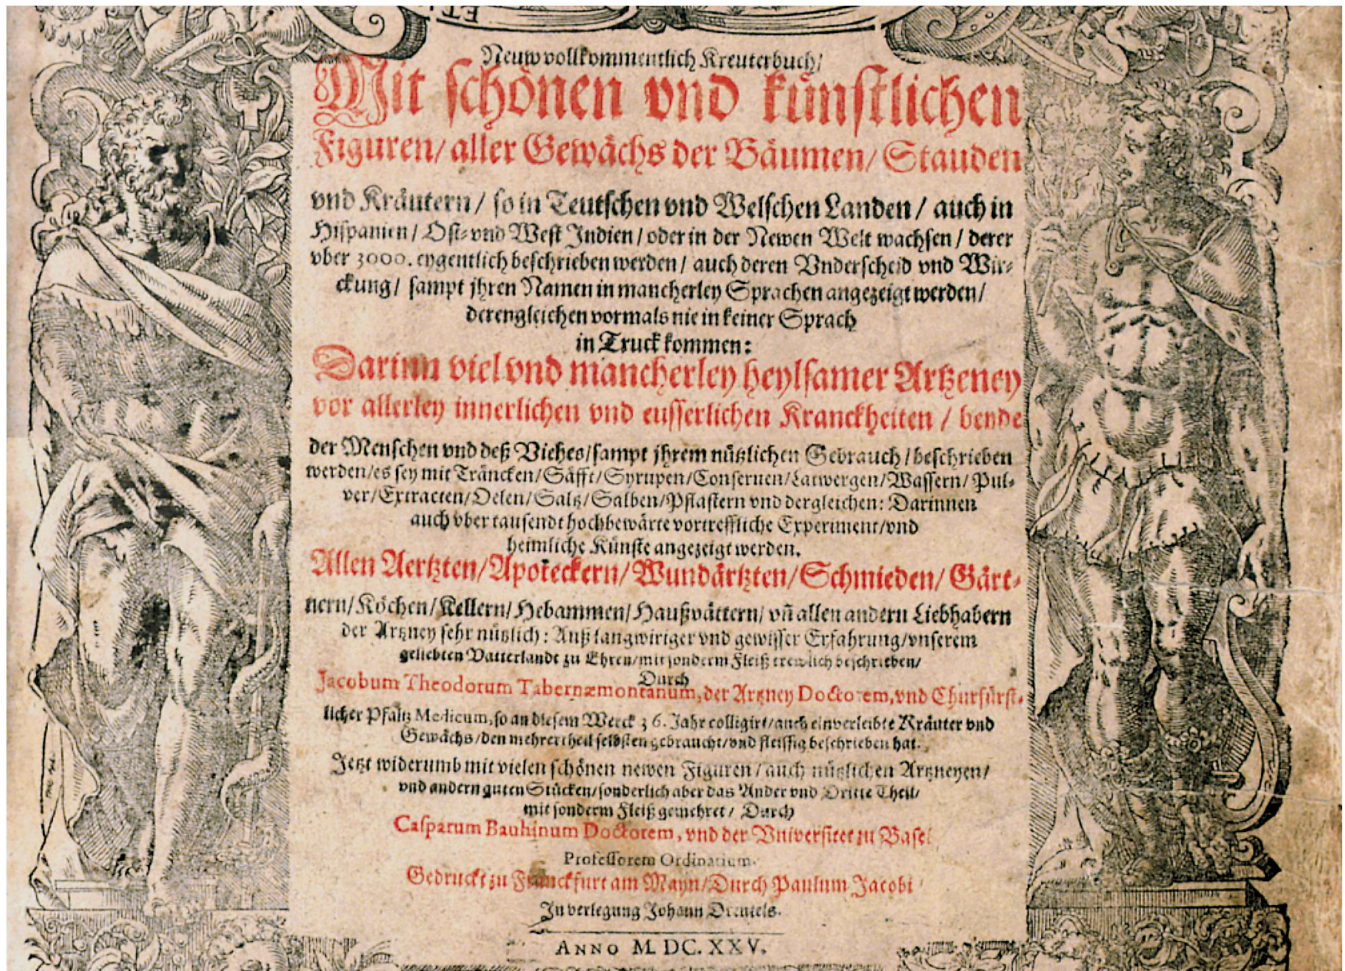 ET
Neuw vollkommentlich Kreuterbuch/
Mit schönen vnd künstlichen
Figuren/ aller Gewächs der Bäumen/ Stauden
vnd Kräutern/ so in Teutschen vnd Welschen Landen/ auch in
Hispanien/ Ost- vnd West Indien/ oder in der Newen Welt wachsen/ derer
vber 3000. eygentlich beschrieben werden/ auch deren Vnderscheid vnd Wir-
ckung/ sampt jhren Namen in mancherley Sprachen angezeigt werden/
derengleichen vormals nie in keiner Sprach
in Truck kommen:
Darinn viel vnd mancherley heylsamer Artzeney
vor allerley innerlichen vnd eusserlichen Kranckheiten/ beyde
der Menschen vnd deß Viehes/ sampt jhrem nützlichen Gebrauch/ beschrieben
werden/ es sey mit Träncken/ Säfft/ Syrupen/ Conseruen/ Latwergen/ Wassern/ Pul-
ver/ Extracten/ Oelen/ Saltz/ Salben/ Pflastern vnd dergleichen: Darinnen
auch vber tausendt hochbewärte vortreffliche Experiment/ vnd
heimliche Künste angezeigt werden.
Allen Aertzten/ Apoteckern/ Wundärtzten/ Schmieden/ Gärt-
nern/ Köchen/ Kellern/ Hebammen/ Haußvättern/ vñ allen andern Liebhabern
der Artzney sehr nützlich: Auß langwiriger vnd gewisser Erfahrung/ vnserem
geliebten Vatterlandt zu Ehren/ mit sonderm Fleiß trewlich beschrieben/
Durch
Jacobum Theodorum Tabernæmontanum, der Artzney Doctorem, vnd Churfürst-
licher Pfaltz Medicum, so an diesem Werck 36. Jahr colligirt/ auch einverleibte Kräuter vnd
Gewächs/ den mehrertheil selbsten gebraucht/ vnd fleissig beschrieben hat.
Jetzt widerumb mit vielen schönen newen Figuren/ auch nützlichen Artzneyen/
vnd andern guten Stücken/ sonderlich aber das Ander vnd Dritte Theil/
mit sonderm Fleiß gemehret/ Durch
Casparum Bauhinum Doctorem, vnd der Vniversitet zu Basel
Professorem Ordinarium.
Gedruckt zu Franckfurt am Mayn/ Durch Paulum Jacobi
In verlegung Johann Dreutels.
ANNO M. DC. XXV.